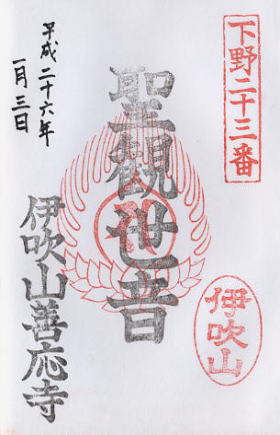 下野二十三番
聖觀世音
伊吹山
伊吹山善応寺
平成二十六年
一月三日